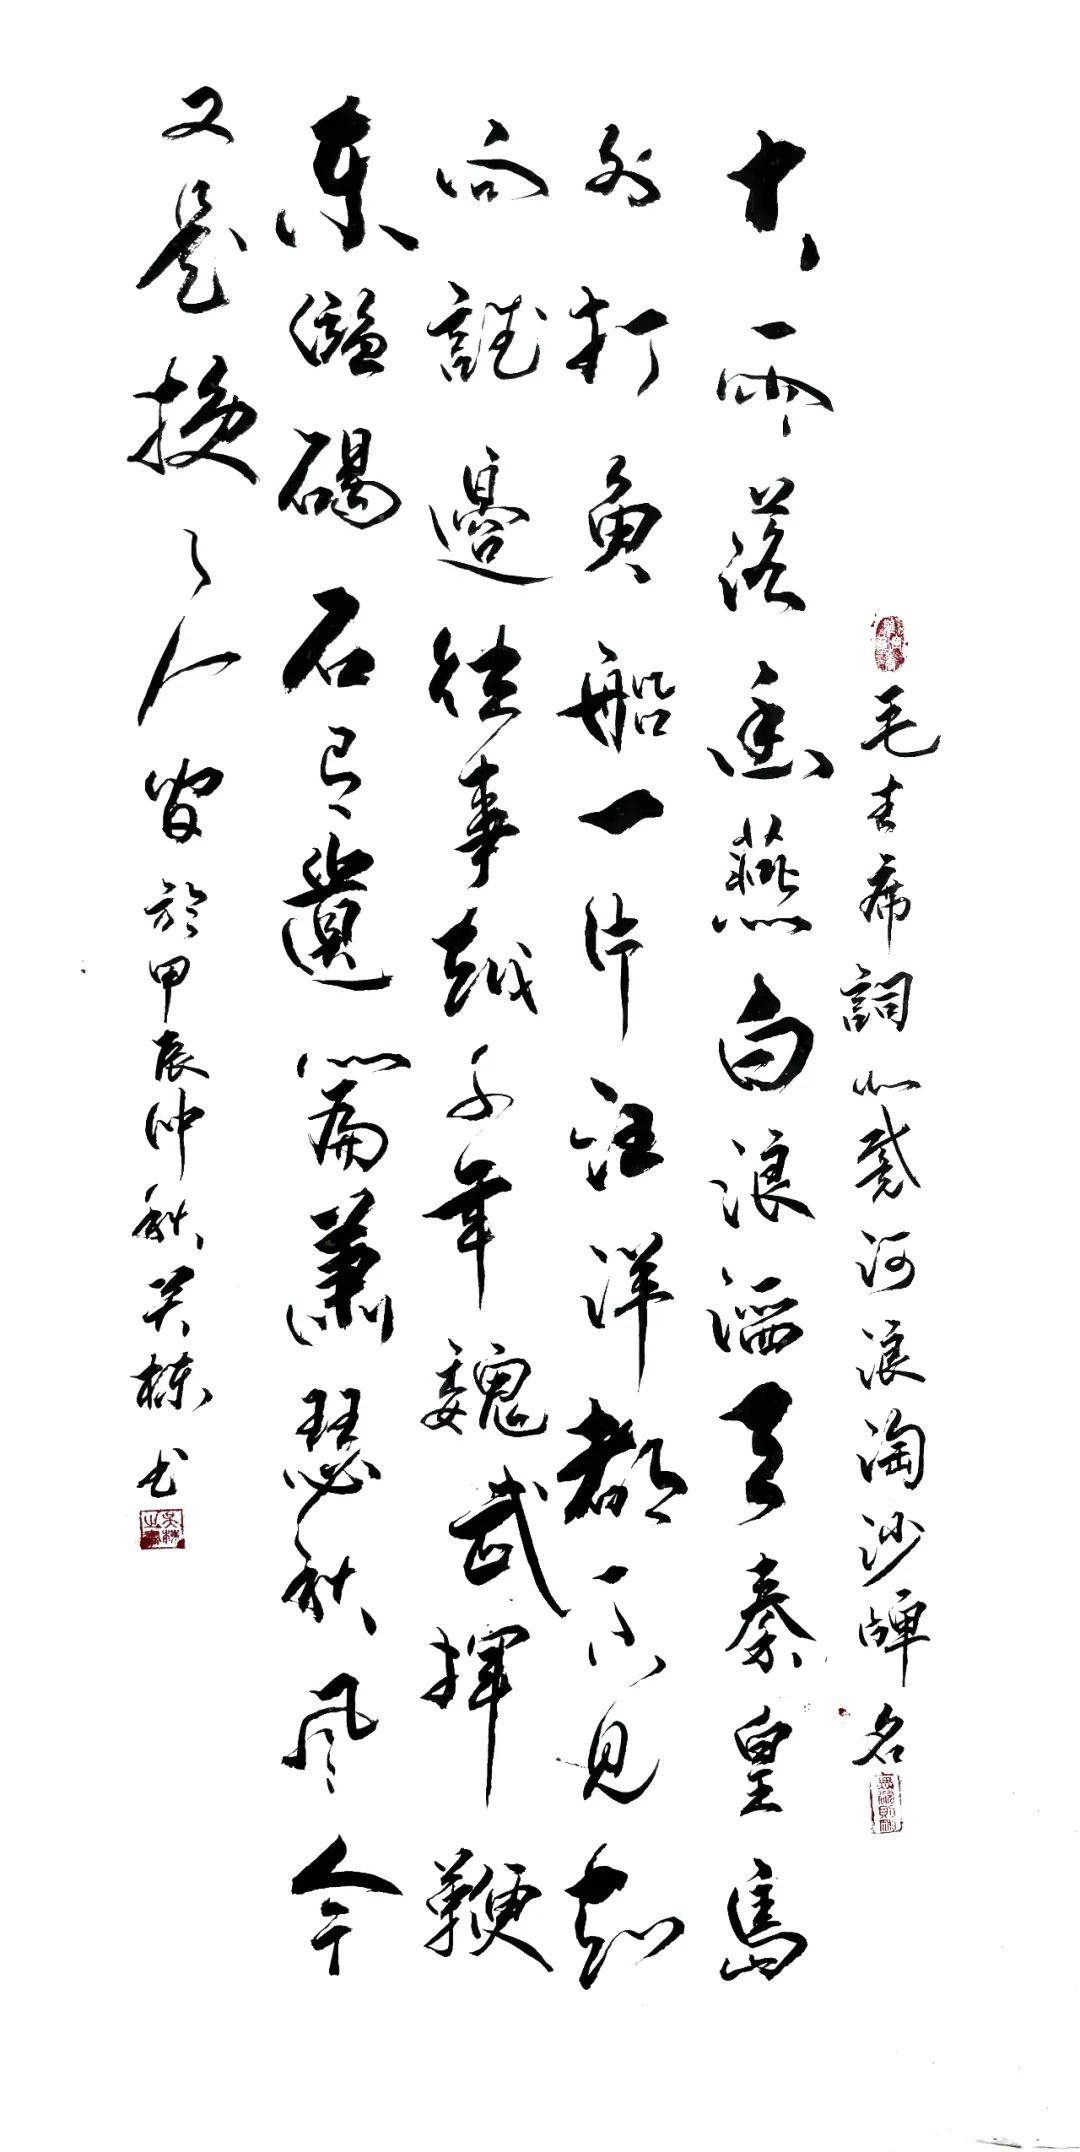 毛主席詞北戴河浪淘沙牌名
大雨落幽燕白浪滔天秦皇島
外打魚船一片汪洋都不見知
向誰邊往事越千年魏武揮鞭
東臨碣石有遺篇蕭瑟秋風今
又是換了人間於甲辰仲秋吴棟书